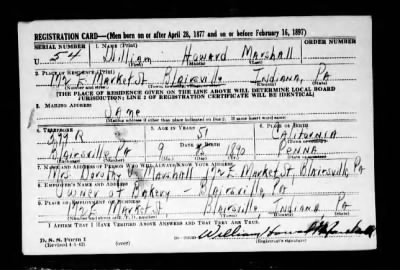 REGISTRATION CARD—(Men born on or after April 28, 1877 and on or before February 16, 1897)
SERIAL NUMBER 1. NAME (Print) ORDER NUMBER
U 54 William Howard Marshall
(First) (Middle) (Last)
2. PLACE OF RESIDENCE (Print)
E Market St Blairsville Indiana, Pa
[THE PLACE OF RESIDENCE GIVEN ON THE LINE ABOVE WILL DETERMINE LOCAL BOARD
JURISDICTION; LINE 2 OF REGISTRATION CERTIFICATE WILL BE IDENTICAL]
3. MAILING ADDRESS
Same
4. TELEPHONE 5. AGE IN YEARS 6. PLACE OF BIRTH
R 51 California
DATE OF BIRTH
Blairsville, Pa 9 1890 Penna
7. NAME AND ADDRESS OF PERSON WHO WILL ALWAYS KNOW YOUR ADDRESS
Mrs. Dorothy Marshall E Market St Blairsville Pa
8. EMPLOYER'S NAME AND ADDRESS
Owner of Bakery - Blairsville Pa
9. PLACE OF EMPLOYMENT OR BUSINESS
E Market St Blairsville Indiana Pa
I AFFIRM THAT I HAVE VERIFIED ABOVE ANSWERS AND THAT THEY ARE TRUE.
D. S. S. Form 1 William Howard Marshall
(Revised 4-1-42) (over) (Registrant's signature)